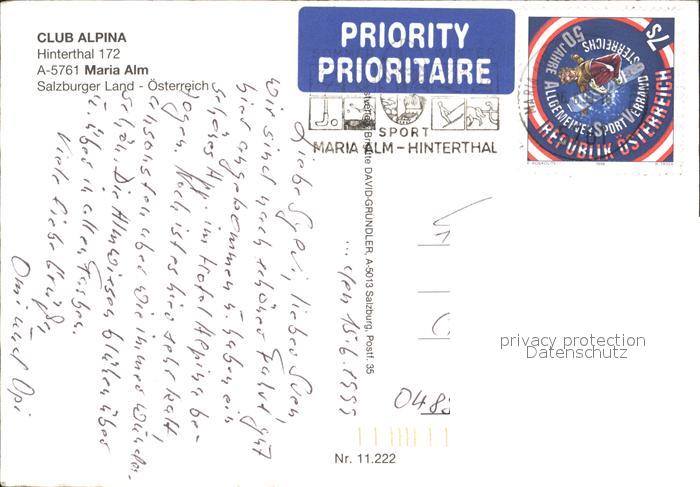 CLUB ALPINA
Hinterthal 172
A-5761 Maria Alm
Salzburger Land - Österreich
PRIORITY
PRIORITAIRE
SPORT
MARIA ALM - HINTERTHAL
50 JAHRE ALLGEMEINER SPORTVERBAND ÖSTERREICHS
REPUBLIK ÖSTERREICH
7S
1999
MARIA
DAVID-GRÜNDLER, A-5013 Salzburg, Postf. 35
... den 15.6.1999
Liebe, lieber Sven,
Wir sind nach schöner Fahrt gut
hier angekommen u. haben ein
schönes App. im Hotel Alpina be-
zogen. Noch ist es hier sehr kalt,
ansonsten aber wie immer wunder-
schön. Die Almwiesen blühen über
u. über in allen Farben.
Viele liebe Grüße,
Omi und Opi
048
privacy protection
Datenschutz
Nr. 11.222